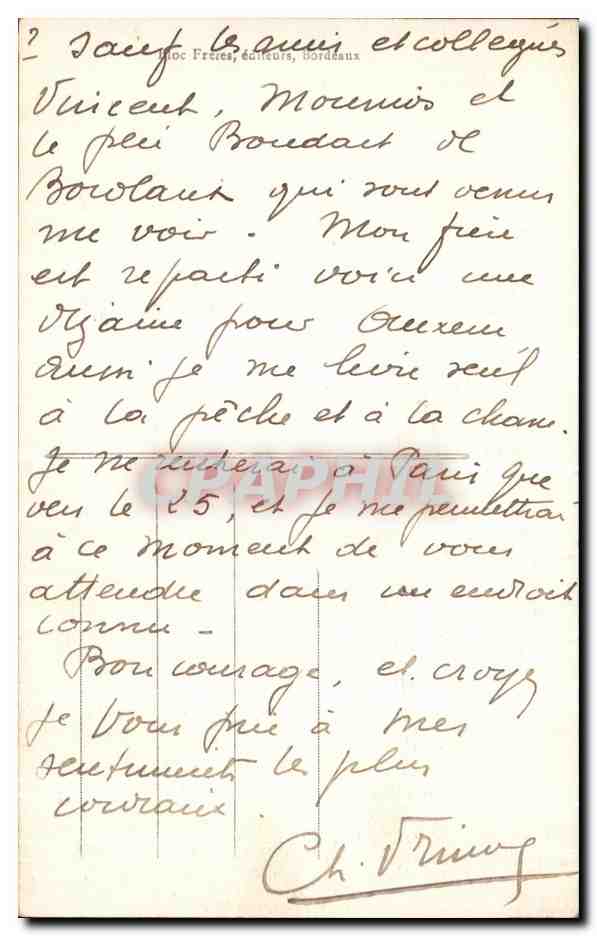 ? sauf les amis et collegues
Bloc Frères, éditeurs, Bordeaux
Vincent, Mounios et
le père Boudart de
qui sont venus
me voir - Mon frère
est reparti voici une
dizaine pour Auxerre
aussi je me livre seul
à la pêche et à la chasse.
Je ne rentrerai à Paris que
CPAPHIL
vers le 25, et je me permettrai
à ce moment de vous
attendre dans un endroit
connu -
Bon courage, et croyez
je vous prie à mes
sentiments les plus
cordiaux.
Ch.